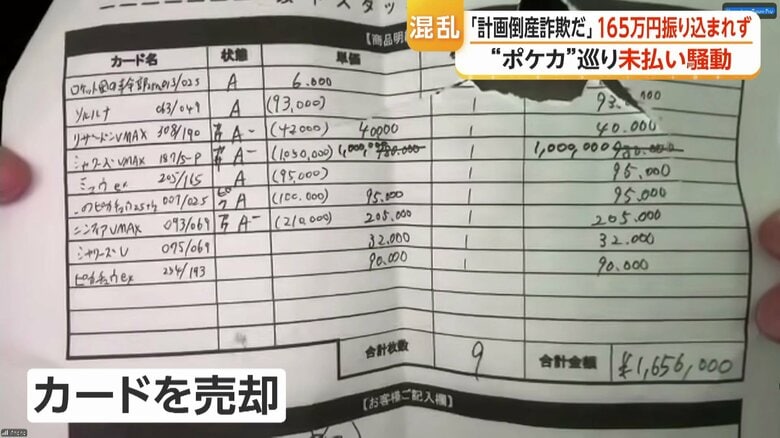 混乱
「計画倒産詐欺だ」165万円振り込まれず
“ポケカ”巡り未払い騒動
【商品明
カード名 状態 単価
013/025 A 6.000
ソルルナ 063/049 A (93,000) 1
リザードンVMAX 308/190 A- (42000) 40000 1 40.000
シャワーズVMAX 187/S-P A- (1050,000) 1,000,000 1 1,000,000
ミュウex 205/165 A (95,000) 1 95.000
のピカチュウ25th 007/025 A (100.000) 95.000 1 95.000
ニンフィアVMAX 093/069 A- (210,000) 205.000 1 205.000
シャワーズV 075/069 32.000 1 32.000
ピカチュウex 234/193 90.000 1 90.000
合計枚数 9 合計金額 ¥1,656,000
【お客様ご記入欄】
カードを売却